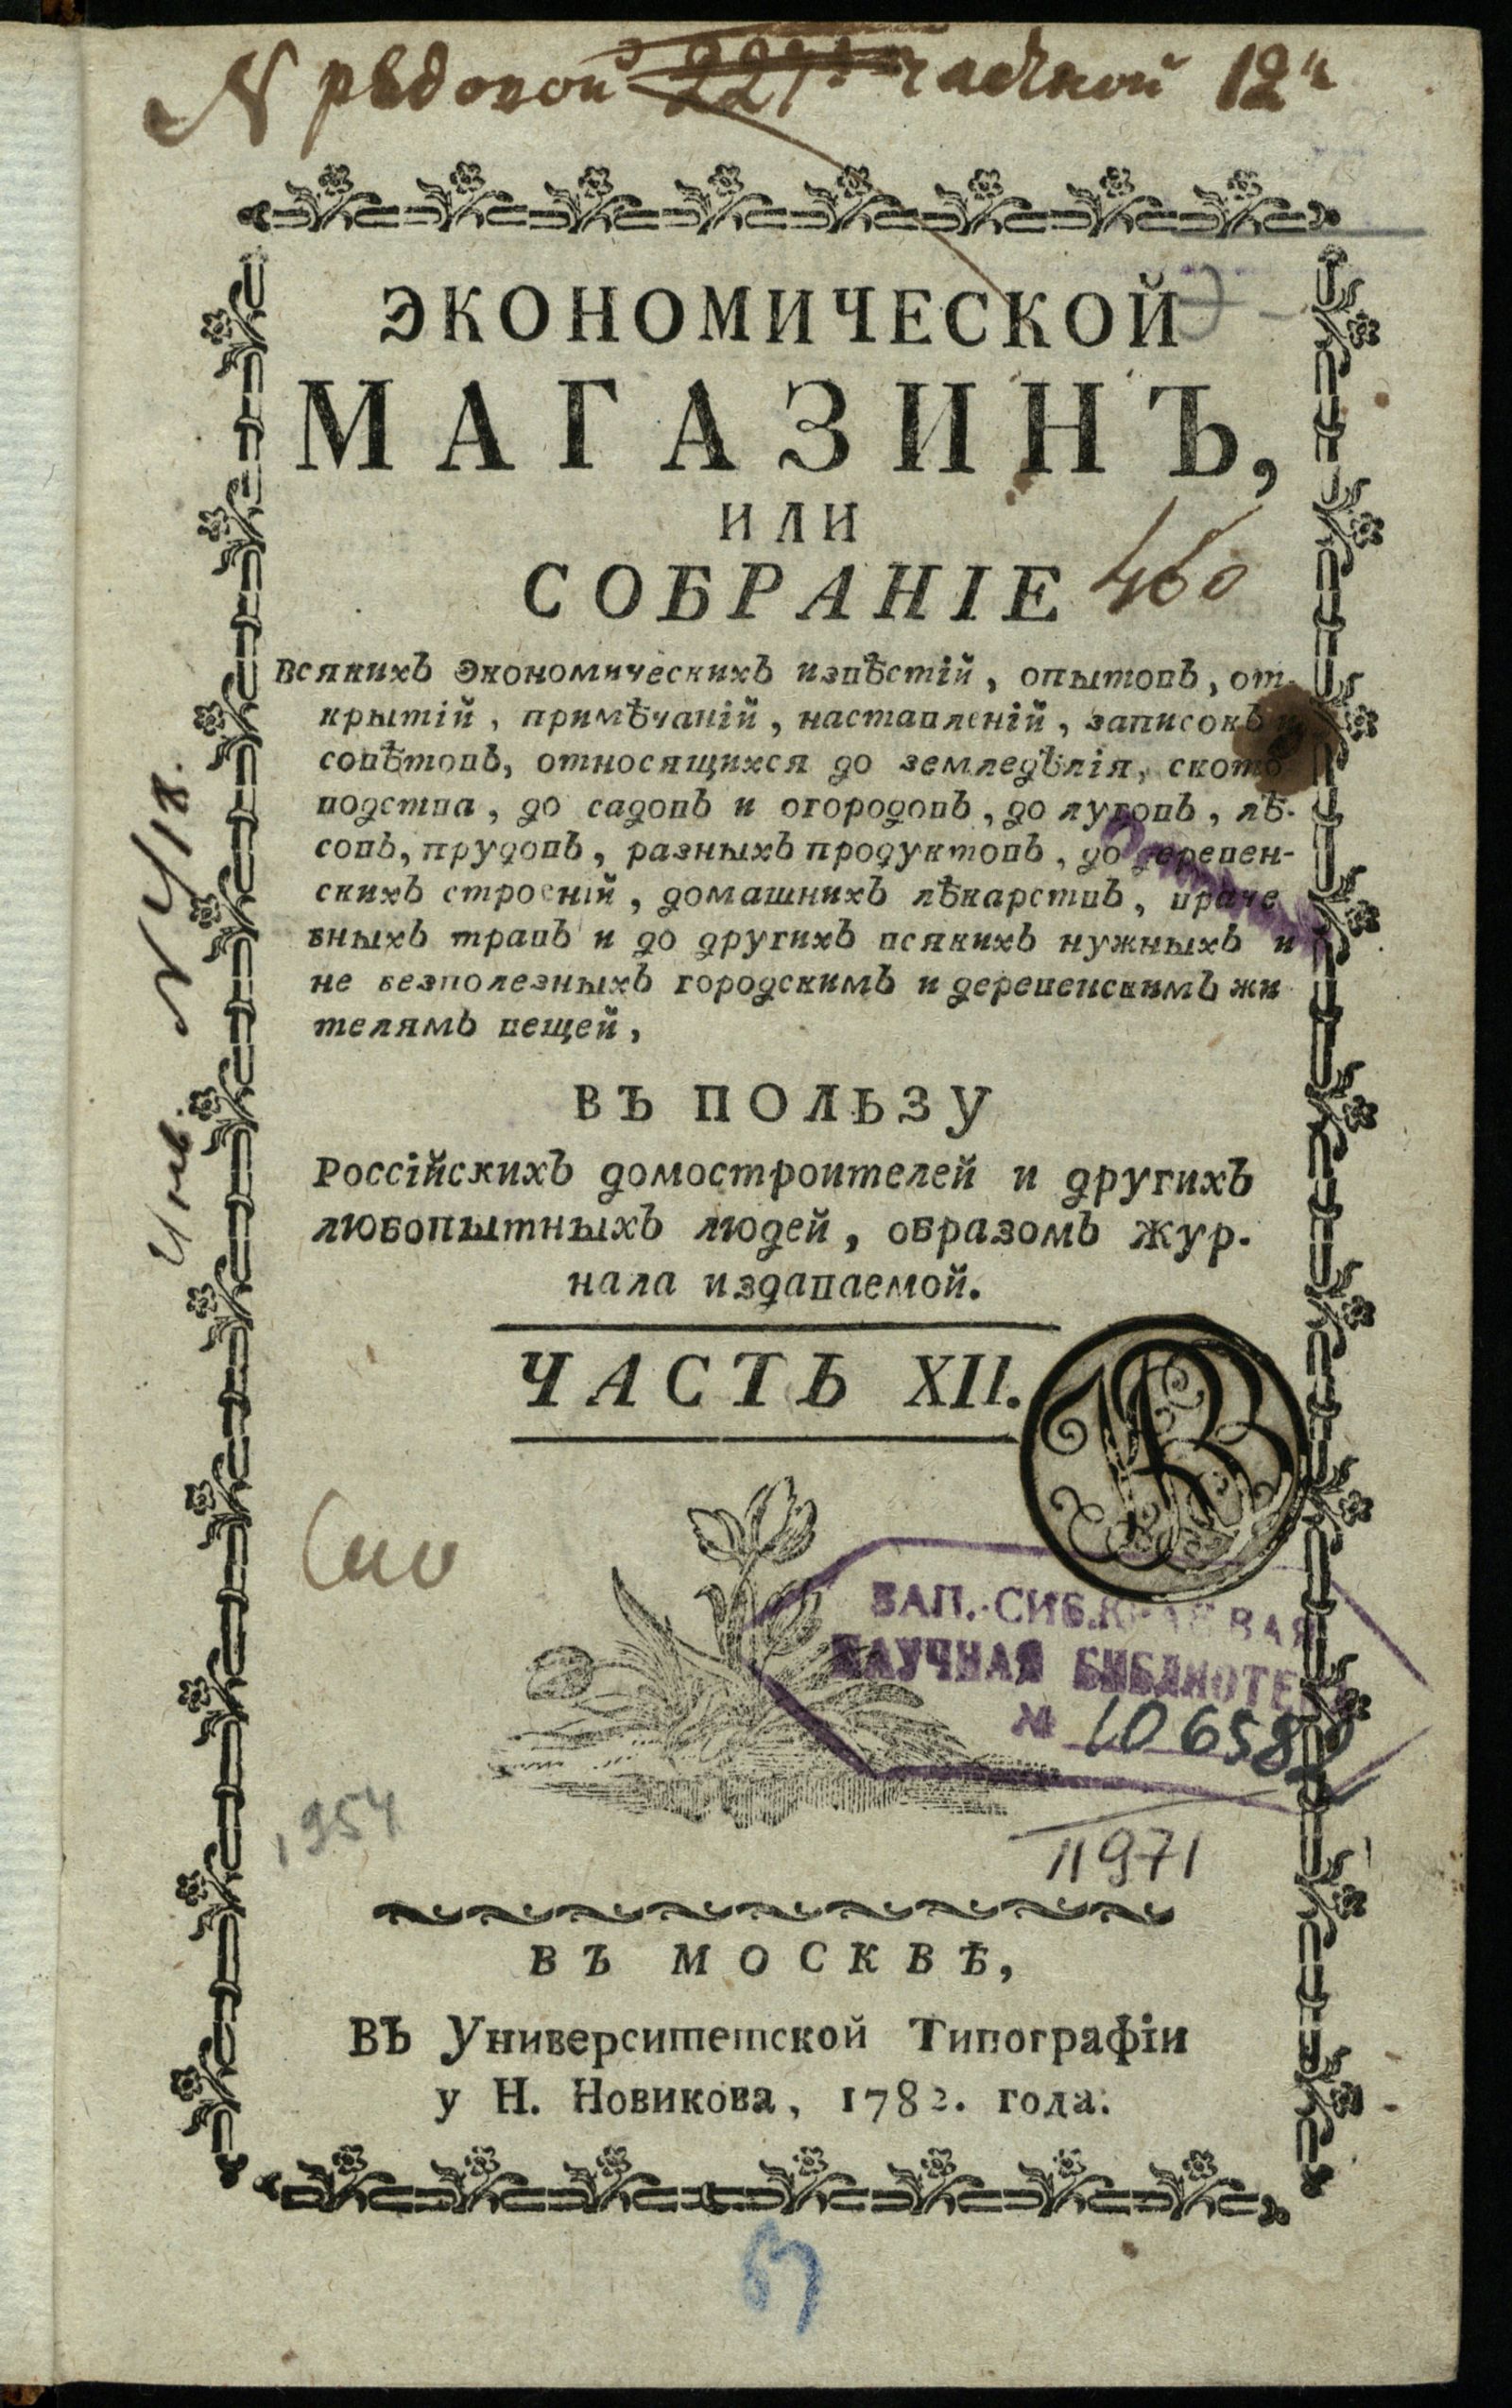 N рядовой частной 12й
ЭКОНОМИЧЕСКОЙ
МАГАЗИНЪ,
ИЛИ
СОБРАНІЕ
460
всякихъ экономическихъ извѣстій, опытовъ, от-
крытій, примѣчаній, наставленій, записокъ и
совѣтовъ, относящихся до земледѣлія, ското
водства, до садовъ и огородовъ, до луговъ, лѣ-
совъ, прудовъ, разныхъ продуктовъ, до деревен-
скихъ строеній, домашнихъ лѣкарствъ, враче
бныхъ травъ и до другихъ всякихъ нужныхъ и
не безполезныхъ городскимъ и деревенскимъ жи
телямъ вещей,
ВЪ ПОЛЬЗУ
Россійскихъ домостроителей и другихъ
любопытныхъ людей, образомъ Жур-
нала издаваемой.
ЧАСТЬ XII.
ЗАП.-СИБ.КРАЕВАЯ
НАУЧНАЯ БИБЛИОТЕ
№ 106582
1954
11971
ВЪ МОСКВѢ,
ВЪ Университетской Типографіи
у Н. Новикова, 1782. года.